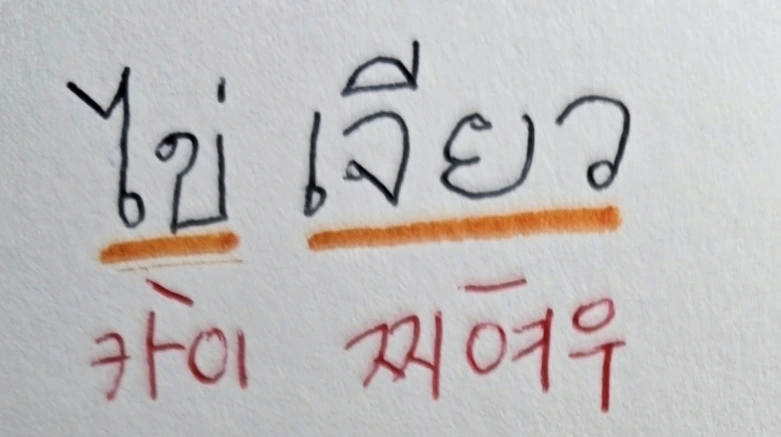 ไข่ เจียว
카이 찌여우